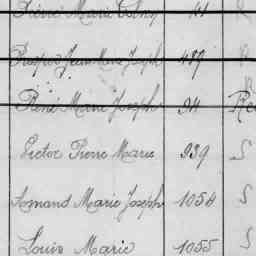 Pierre Marie 41
Prosper Jean Marie Joseph 489
René Marie Joseph 94 Re
Victor Pierre Marie 939 S
Armand Marie Joseph 1054 S
Louis Marie 1055 S